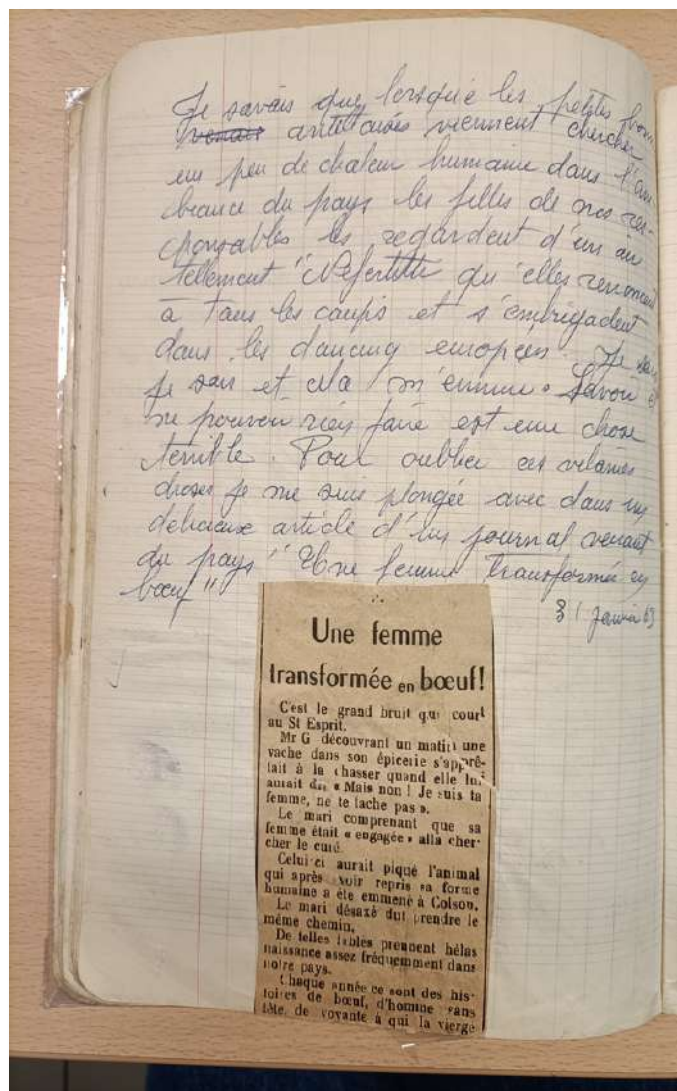 Je savais que lorsque les petites bonnes
antillaises viennent chercher
un peu de chaleur humaine dans l'am-
biance du pays les filles de nos res-
ponsables les regardent d'un air
tellement "Nefertiti qu'elles renoncent
à tous les coups et s'embrigadent
dans les dancing européen. Je sais
je sais et cela m'ennuie. Savoir et
ne pouvoir rien faire est une chose
terrible. Pour oublier ces vilaines
choses je me suis plongée avec dans un
délicieux article d'un journal venant
du pays "Une femme transformée en
boeuf"
31 Janvier 63
Une femme
transformée en bœuf!
C'est le grand bruit qui court
au St Esprit.
Mr G découvrant un matin une
vache dans son épicerie s'apprê-
tait à la chasser quand elle lui
aurait dit « Mais non ! Je suis ta
femme, ne te fache pas ».
Le mari comprenant que sa
femme était « engagée » alla cher-
cher le curé.
Celui-ci aurait piqué l'animal
qui après avoir repris sa forme
humaine a été emmené à Colson.
Le mari désaxé dut prendre le
même chemin.
De telles fables prennent hélas
naissance assez fréquemment dans
notre pays.
Chaque année ce sont des his-
toires de bœuf, d'homme sans
tête, de voyante à qui la vierge